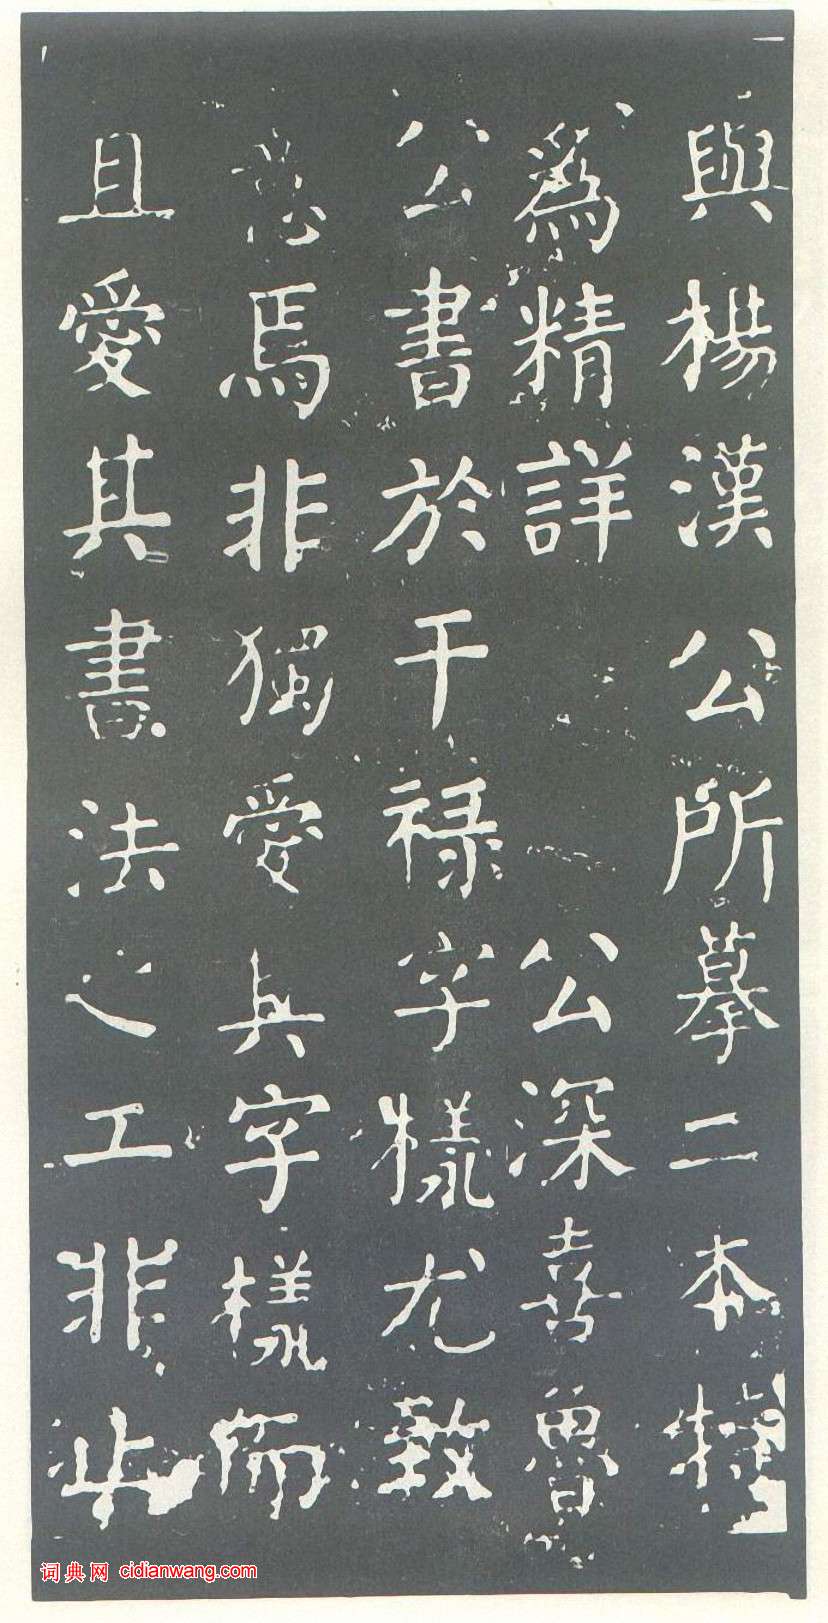 與楊漢公所摹二本
為精詳 公深喜魯
公書於干禄字樣尤致
意焉非獨愛其字樣而
且愛其書法之工非止
词典网 cidianwang.com